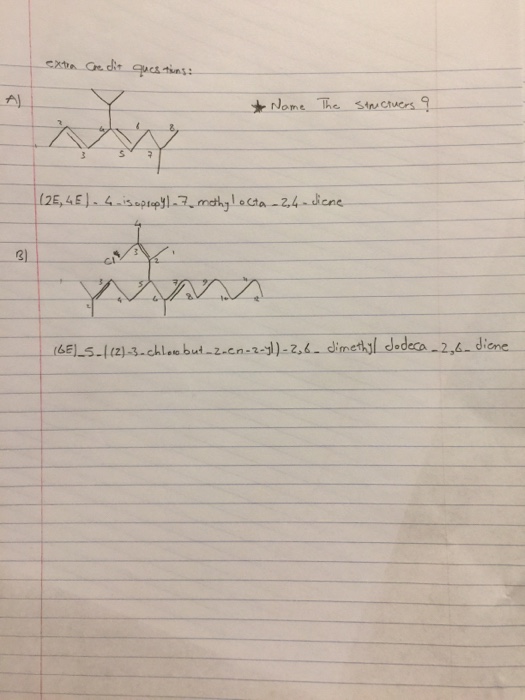 extra credit questions:
A)
★ Name The structuers ?
2
4
6
8
3
5
7
(2E,4E)-4-isopropyl-7-methylocta-2,4-diene
B)
4
3
Cl
2
1
3
5
7
9
11
1
2
4
6
8
10
12
(6E)-5-((Z)-3-chlorobut-2-en-2-yl)-2,6-dimethyl dodeca-2,6-diene